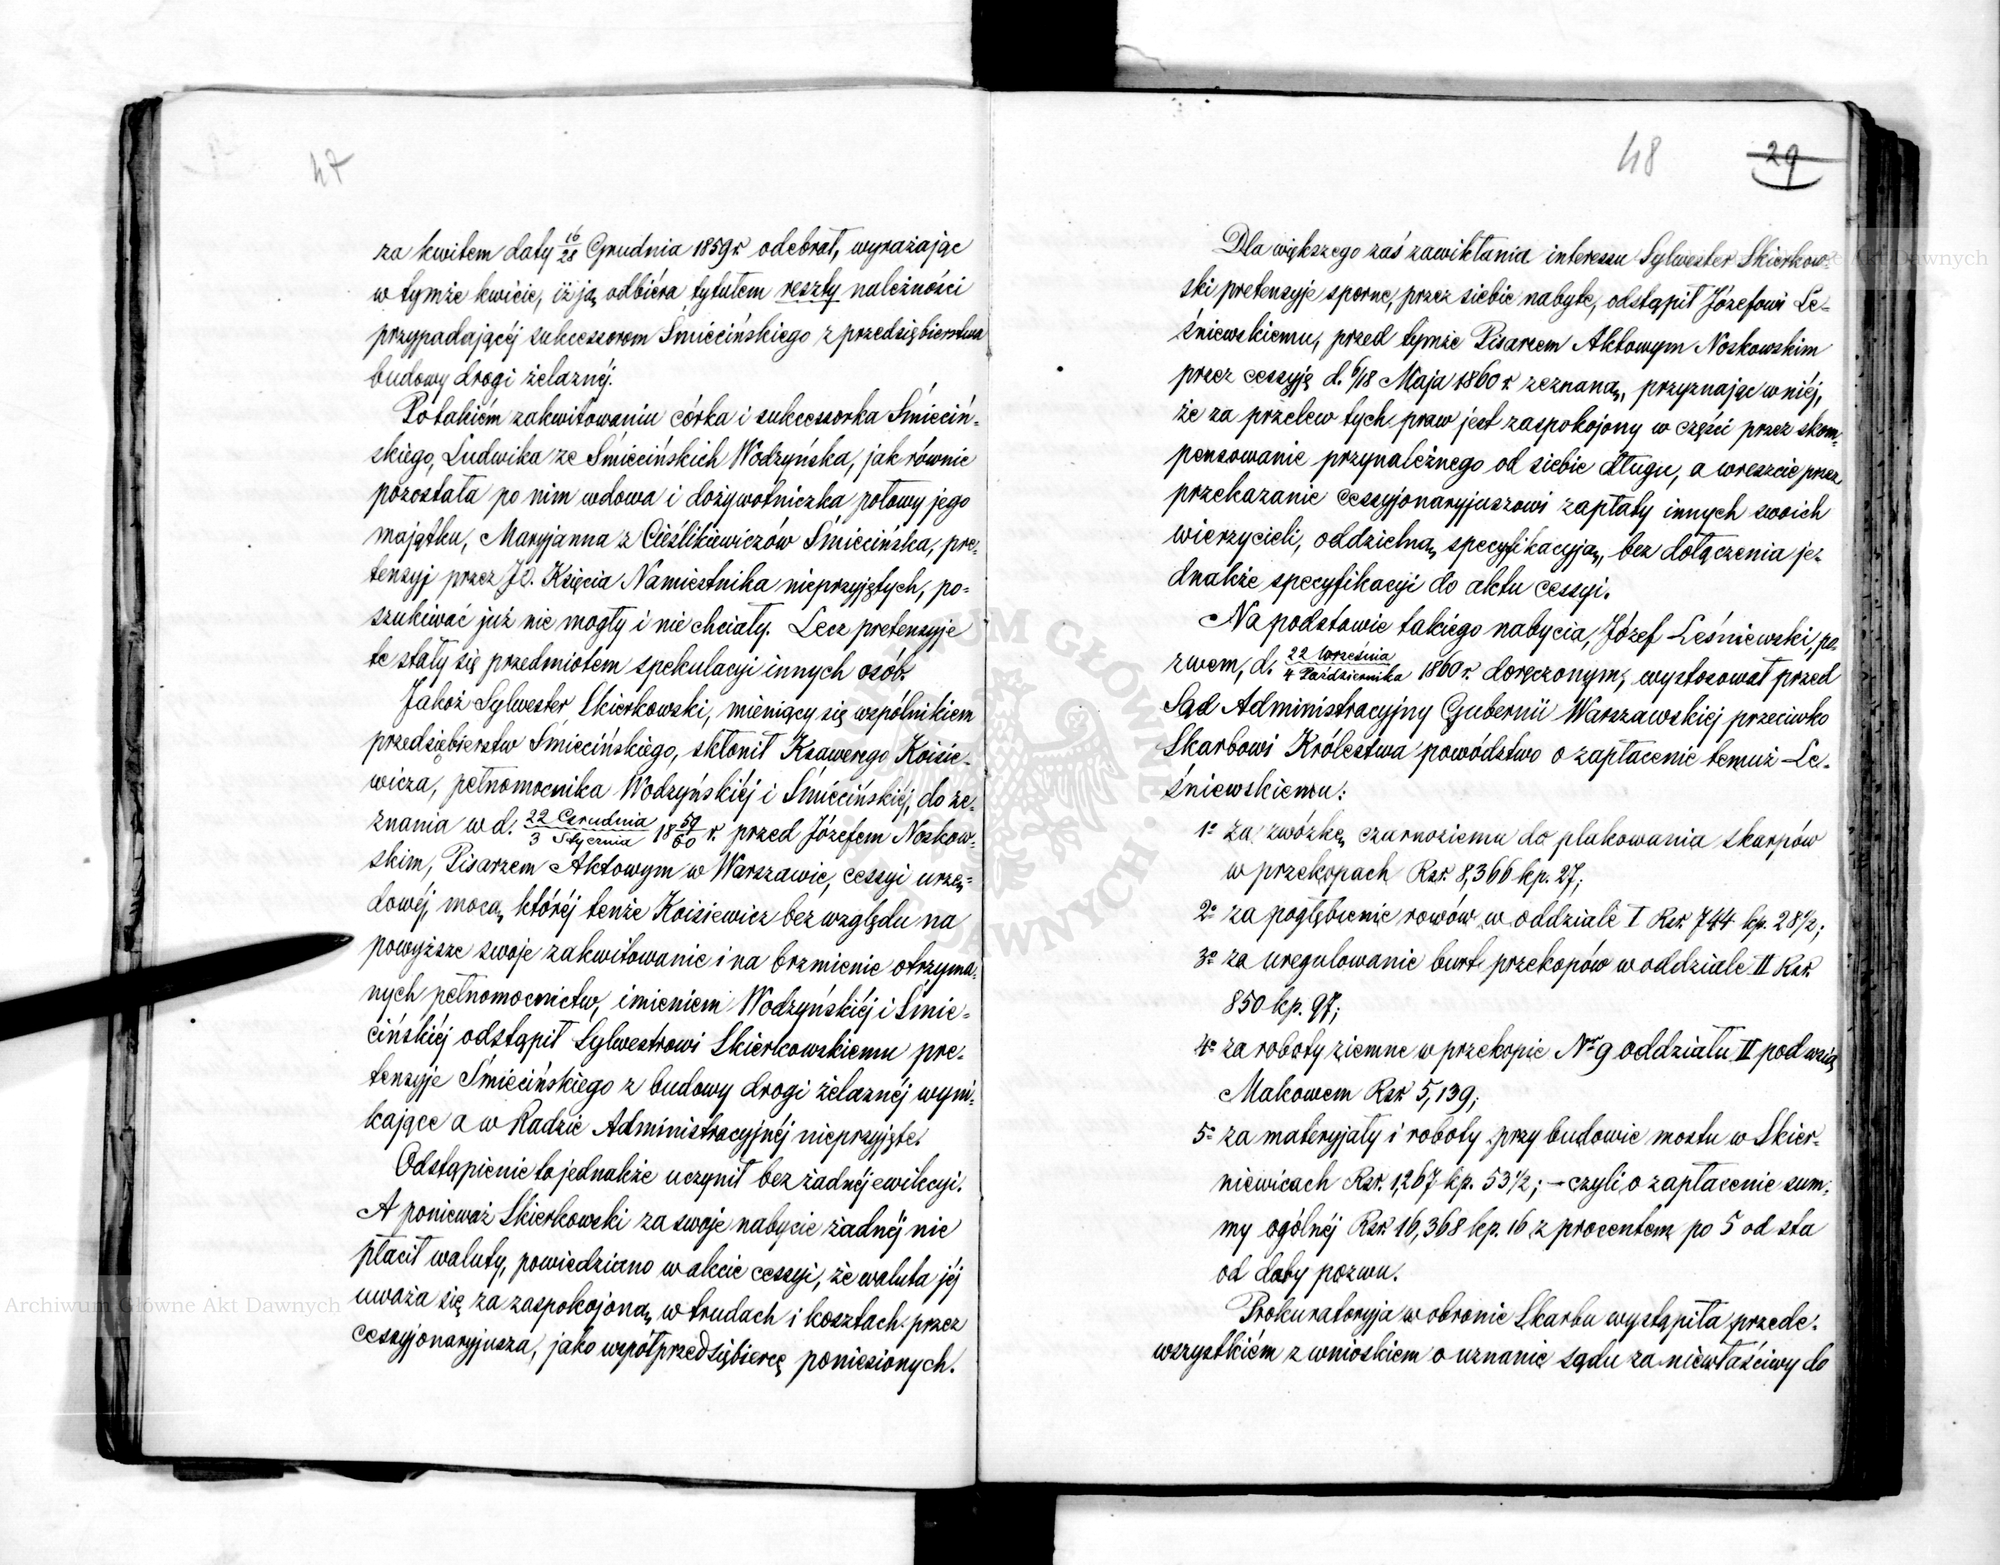 47
za kwitem daty 16/28 Grudnia 1859 r. odebrał, wyrażając
w tymże kwicie, iż ją odbiéra tytułem reszty należności
przypadającéj sukcessorom Śmiecińskiego z przedsiębierstwa
budowy drogi żelaznéj.
Po takiém zakwitowaniu córka i sukcessorka Śmieciń-
skiego, Ludwika ze Śmiecińskich Wodzyńska, jak równie
pozostała po nim wdowa i dożywotniczka połowy jego
majątku, Maryjanna z Cieślikiewiczów Śmiecińska, pre-
tensyj przez JO. Księcia Namiestnika nieprzyjętych, po-
szukiwać już nie mogły i nie chciały. Lecz pretensyje
te stały się przedmiotem spekulacyi innych osób.
Jakoż Sylwester Skierkowski, mieniący się wspólnikiem
przedsiębierstw Śmiecińskiego, skłonił Ksawerego Koisie-
wicza, pełnomocnika Wodzyńskiéj i Śmiecińskiéj, do ze-
znania w d. 22 Grudnia/3 Stycznia 18 59/60 r. przed Józefem Noskow-
skim, Pisarzem Aktowym w Warszawie, cessyi urzę-
dowéj, mocą któréj tenże Koisiewicz bez względu na
powyższe swoje zakwitowanie i na brzmienie otrzyma-
nych pełnomocnictw, imieniem Wodzyńskiéj i Śmie-
cińskiéj odstąpił Sylwestrowi Skierkowskiemu pre-
tensyje Śmiecińskiego z budowy drogi żelaznéj wyni-
kające a w Radzie Administracyjnéj nieprzyjęte.
Odstąpienie to jednakże uczynił bez żadnéj ewikcyi.
A ponieważ Skierkowski za swoje nabycie żadnéj nie
płacił waluty, powiedziano w akcie cessyi, że waluta jéj
uważa się za zaspokojoną w trudach i kosztach przez
cessyjonaryjusza, jako współprzedsiębiercę poniesionych.
48
29
Dla większego zaś zawikłania interessu Sylwester Skierkow-
ski pretensyje sporne, przez siebie nabyte, odstąpił Józefowi Le-
śniewskiemu, przed tymże Pisarzem Aktowym Noskowskim
przez cessyję d. 6/18 Maja 1860 r. zeznaną, przyznając w niéj,
że za przelew tych praw jest zaspokojony w części przez skom-
pensowanie przynależnego od siebie długu, a wreszcie przez
przekazanie cessyjonaryjuszowi zapłaty innych swoich
wierzycieli, oddzielną specyfikacyją, bez dołączenia je-
dnakże specyfikacyi do aktu cessyi.
Na podstawie takiego nabycia, Józef Leśniewski, po-
zwem, d. 22 Września/4 Października 1860 r. doręczonym, wystosował przed
Sąd Administracyjny Gubernii Warszawskiéj przeciwko
Skarbowi Królestwa powództwo o zapłacenie temuż Le-
śniewskiemu:
1° za zwózkę czarnoziemu do plakowania skarpów
w przekopach Rsr. 8,366 kp. 27;
2° za pogłębienie rowów w oddziale I Rsr. 744 kp. 28½;
3° za uregulowanie burt przekopów w oddziale II Rsr.
850 kp. 97;
4° za roboty ziemne w przekopie Nr 9 oddziału II pod wsią
Makowem Rsr. 5,139;
5° za materyjały i roboty przy budowie mostu w Skier-
niewicach Rsr. 1,267 kp. 53½; – czyli o zapłacenie sum-
my ogólnéj Rsr. 16,368 kp. 16 z procentem po 5 od sta
od daty pozwu.
Prokuratoryja w obronie Skarbu wystąpiła przede-
wszystkiém z wnioskiem o uznanie sądu za niewłaściwy do
Archiwum Główne Akt Dawnych
ARCHIWUM GŁÓWNE AKT DAWNYCH